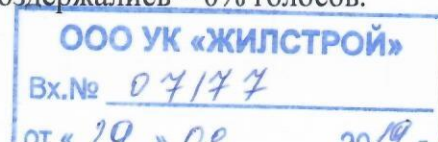 воздержались – 0% голосов.
ООО УК «ЖИЛСТРОЙ»
Вх.№ 07177
от « 29 » 08 2019 г.